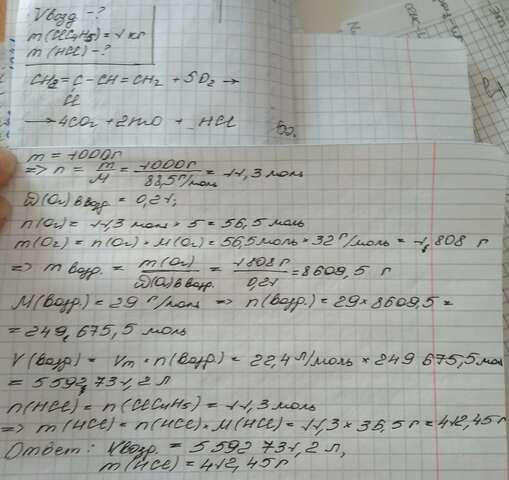 Vвозд - ?
m(ClC4H5) = 1 кг
m(HCl) - ?
CH2=C-CH=CH2 + 5O2 →
Cl
→ 4CO2 + 2H2O + HCl
m = 1000г
=> n = m/M = 1000г/88,5г/моль = 11,3 моль
ω(O2) в возд. = 0,21;
n(O2) = 11,3 моль × 5 = 56,5 моль
m(O2) = n(O2) × M(O2) = 56,5 моль × 32 г/моль = 1,808 г
=> m возд. = m(O2)/ω(O2) в возд. = 1808 г/0,21 = 8609,5 г
M(возд.) = 29 г/моль => n(возд.) = 29 × 8609,5 =
= 249,675,5 моль
V(возд) = Vm · n(возд) = 22,4 л/моль × 249 675,5 моль
= 5 592,731,2 л
n(HCl) = n(ClC4H5) = 11,3 моль
=> m(HCl) = n(HCl) × M(HCl) = 11,3 × 36,5 г = 412,45 г
Ответ: Vвозд. = 5 592 731,2 л,
m(HCl) = 412,45 г